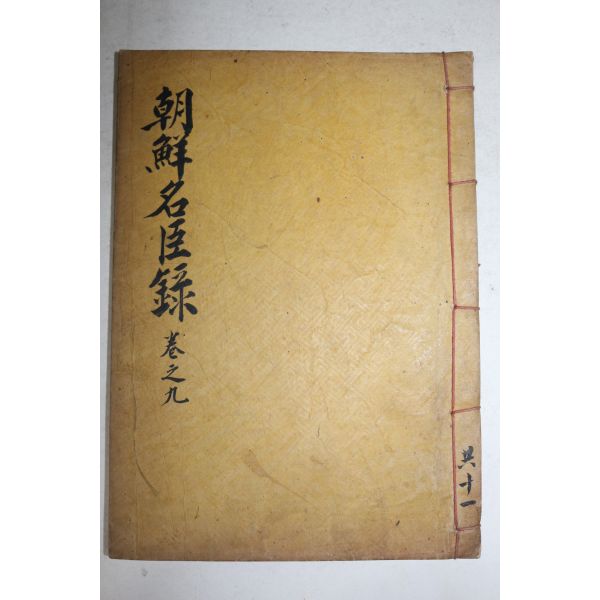 朝鮮名臣錄
卷之九
共十一